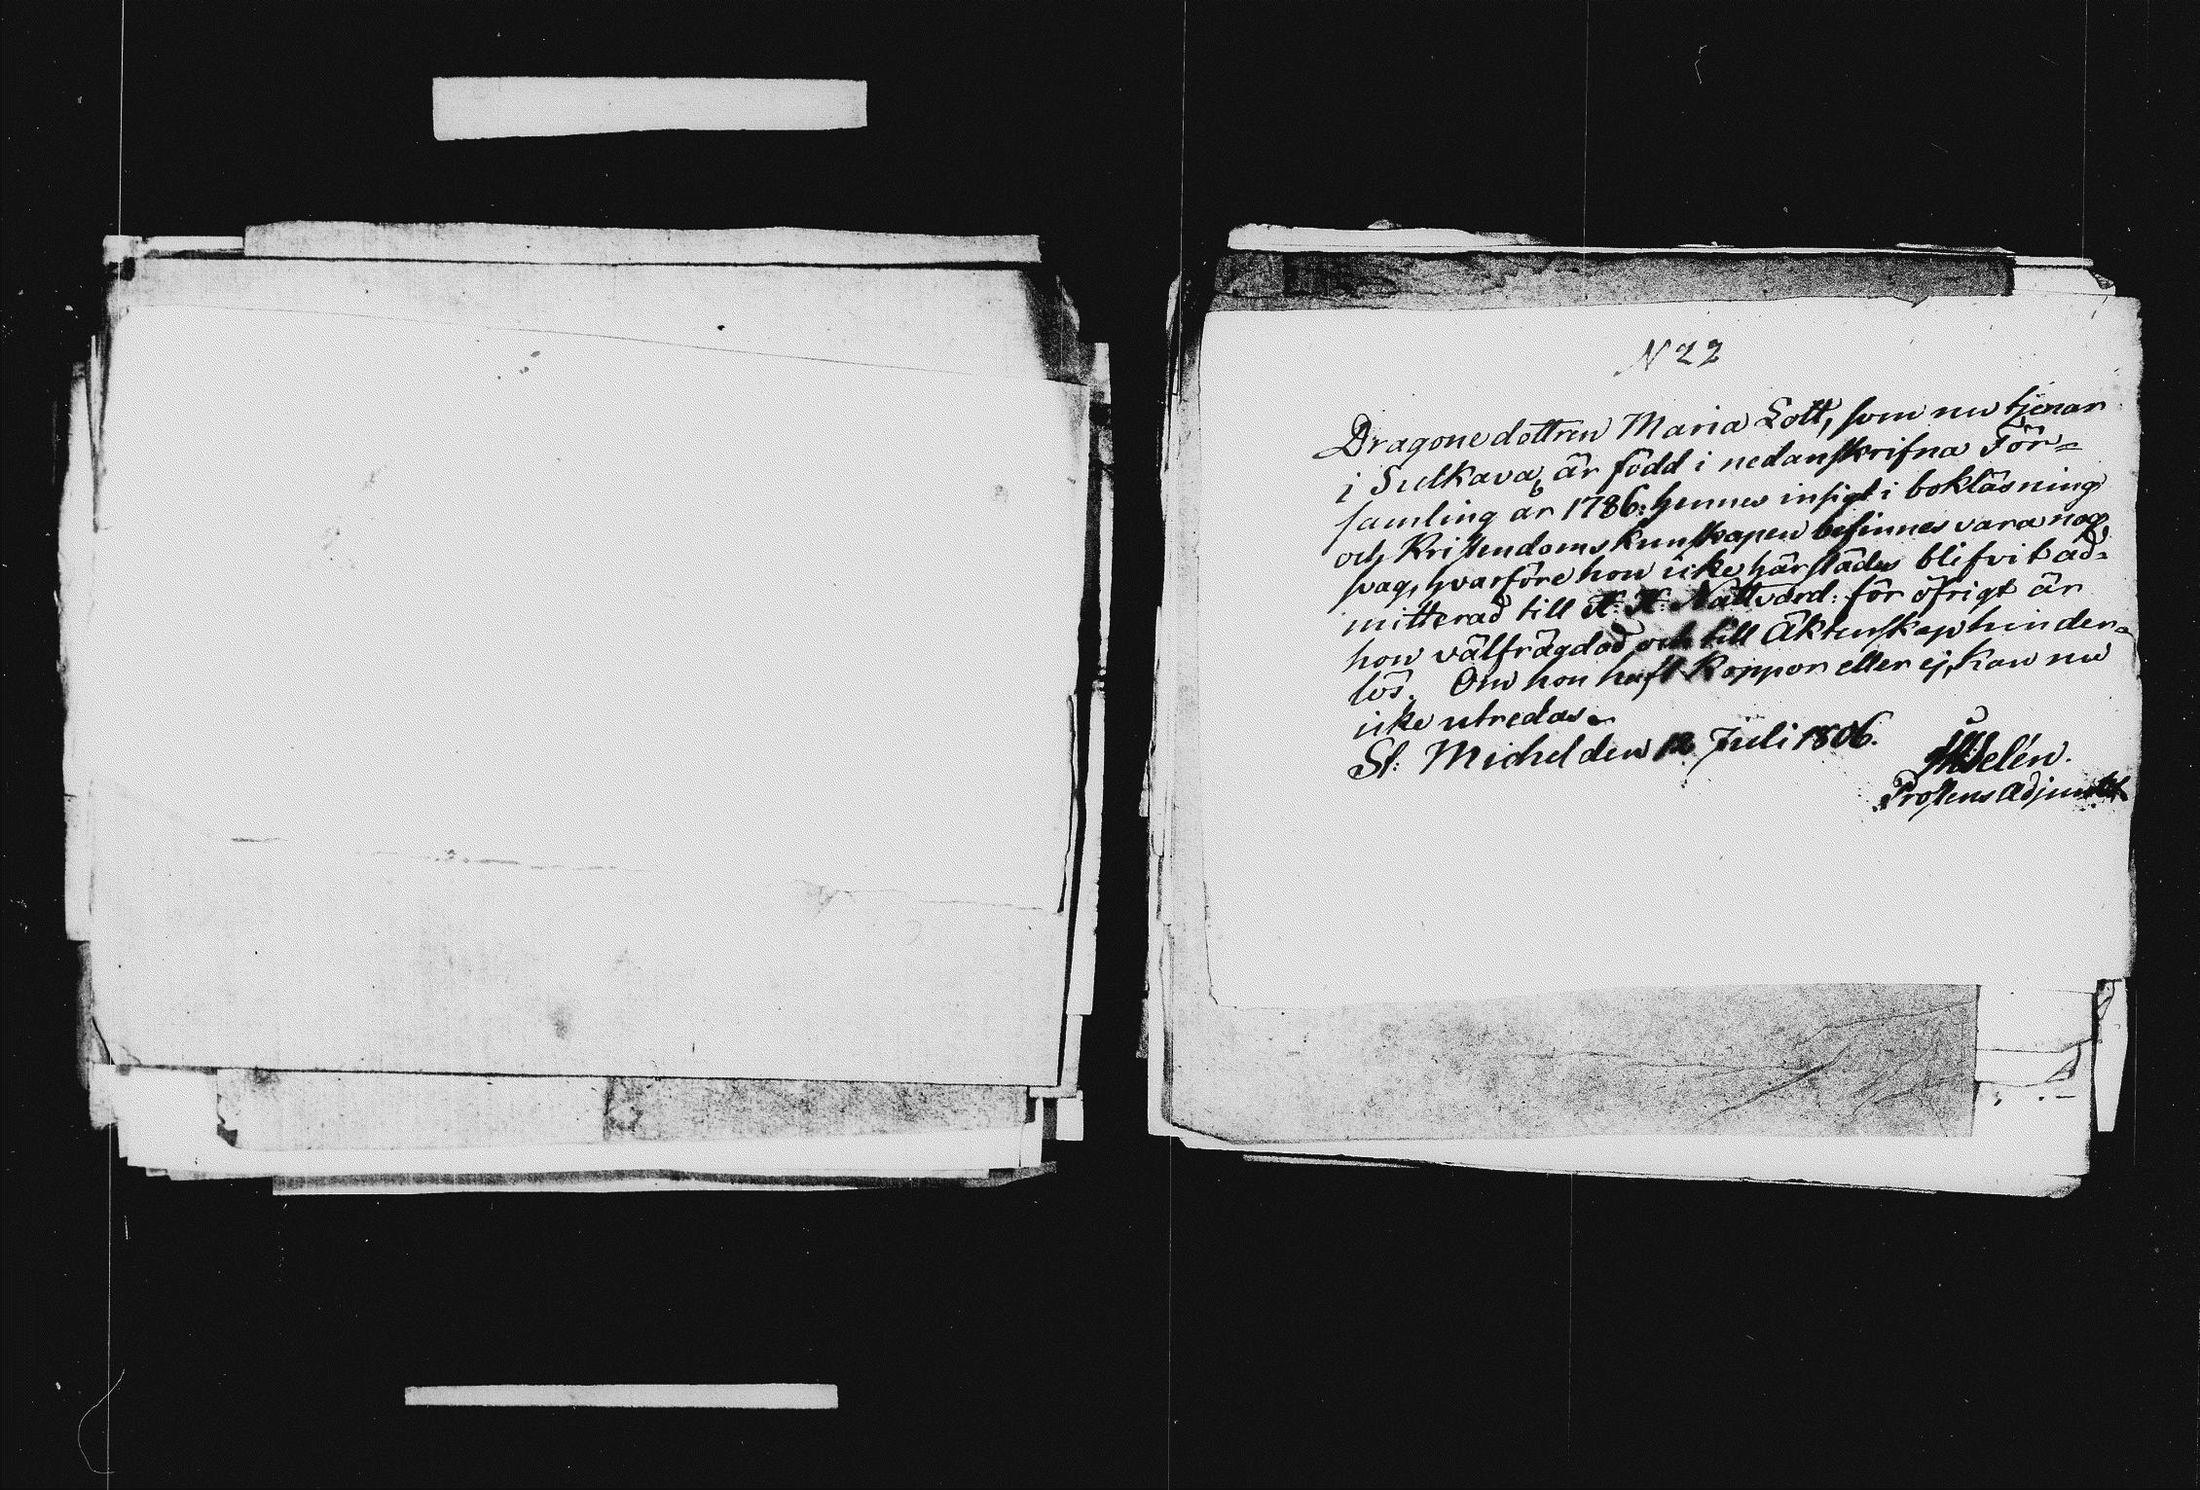 N 22
Dragonedottren Maria Lott, som nu tjenar
i Sulkava, är född i nedanskrifna För=
samling år 1786: hennes insigt i bokläsning
och Kristendomskunskapen befinnes vara nog
svag, hvarföre hon icke härstädes blifvit ad=
mitterad till H. H. Nattvard: för öfrigt är
hon välfrägdad och till Äktenskap hinder=
lös. Om hon haft Koppor eller ej, kan nu
icke utredas.
St. Michel den 12 Juli 1806.
Prostens Adjunkt